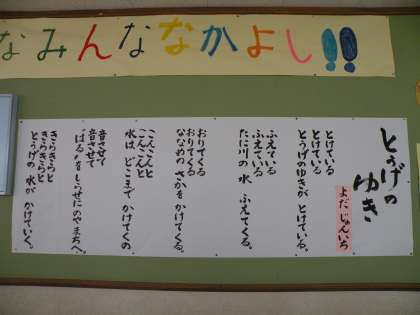 なみんな なかよし!!
とうげの
ゆき
よだ じゅんいち
とけている
とけている
とうげのゆきが とけている。
ふえている
ふえている
たに川の 水 ふえてくる。
おりてくる
おりてくる
ななめの さかを かけてくる。
こんこんと
こんこんと
水は どこまで かけてくの
音させて
音させて
「はる」をしらせにのやまちへ。
きらきらと
きらきらと
とうげの 水が かけていく。